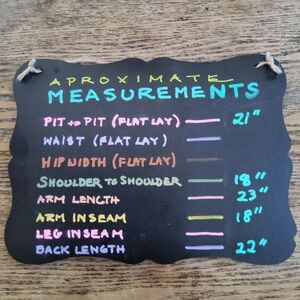 APROXIMATE
MEASUREMENTS
PIT to PIT (FLAT LAY) — 21"
WAIST (FLAT LAY) —
HIP WIDTH (FLAT LAY) —
SHOULDER TO SHOULDER — 18"
ARM LENGTH — 23"
ARM INSEAM — 18"
LEG INSEAM —
BACK LENGTH — 22"